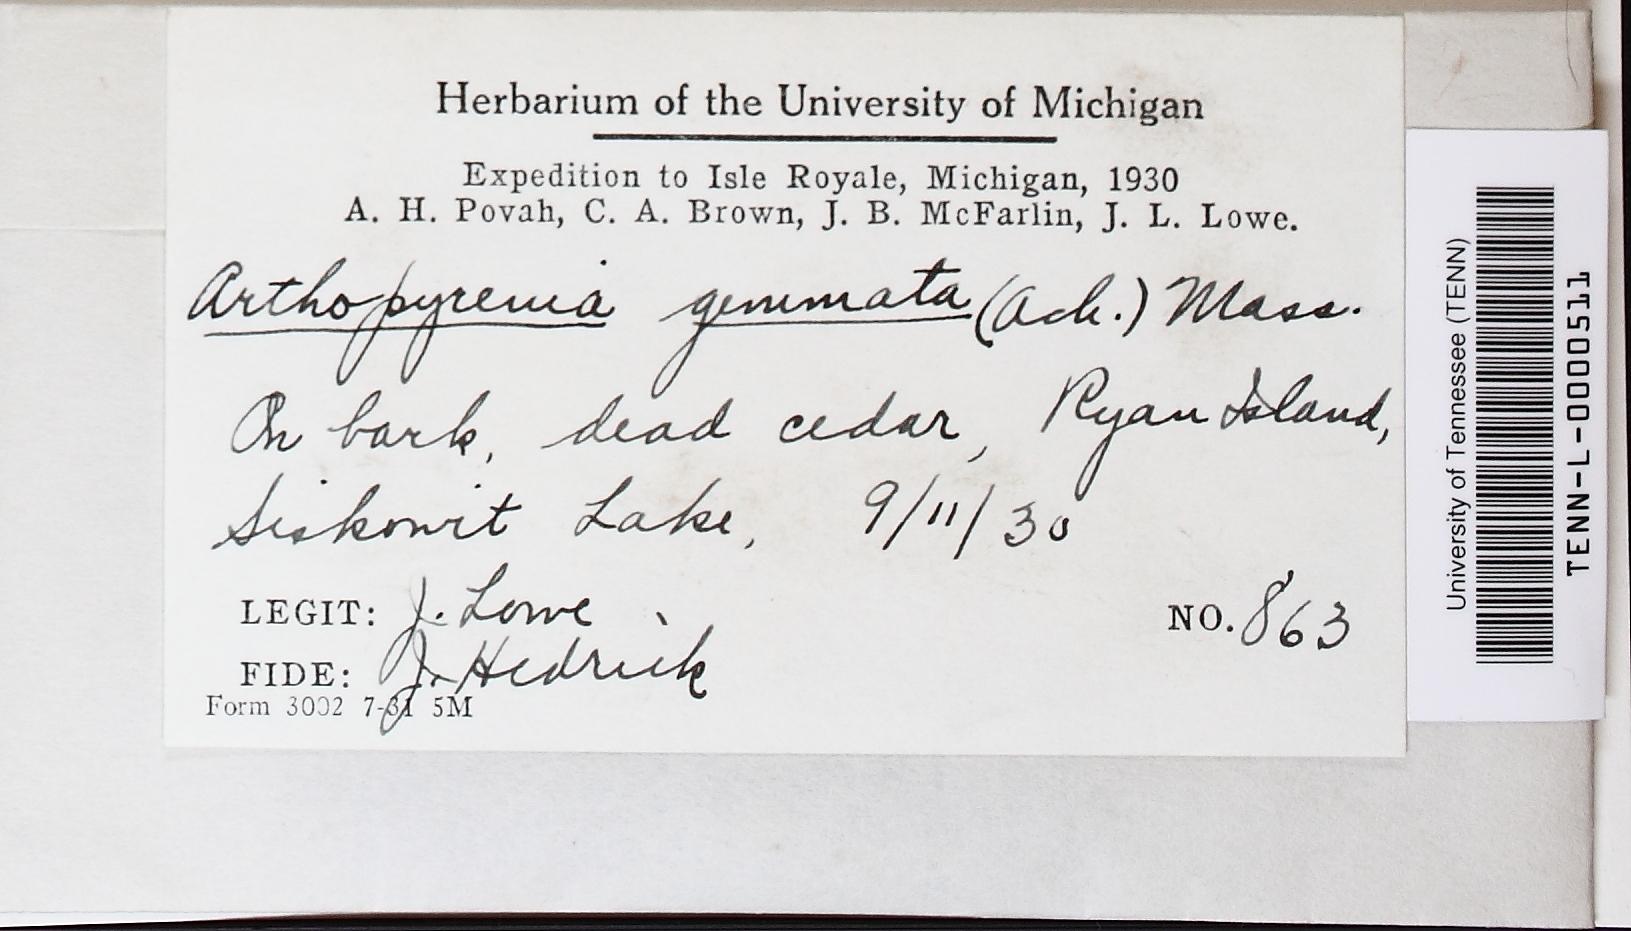 Herbarium of the University of Michigan
Expedition to Isle Royale, Michigan, 1930
A. H. Povah, C. A. Brown, J. B. McFarlin, J. L. Lowe.
Arthopyrenia gemmata (Ach.) Mass.
On bark, dead cedar, Ryan Island,
Siskowit Lake, 9/11/30
LEGIT: J. Lowe
NO. 863
FIDE: J. Hedrick
Form 3002 7-31 5M
University of Tennessee (TENN)
TENN-L-0000511